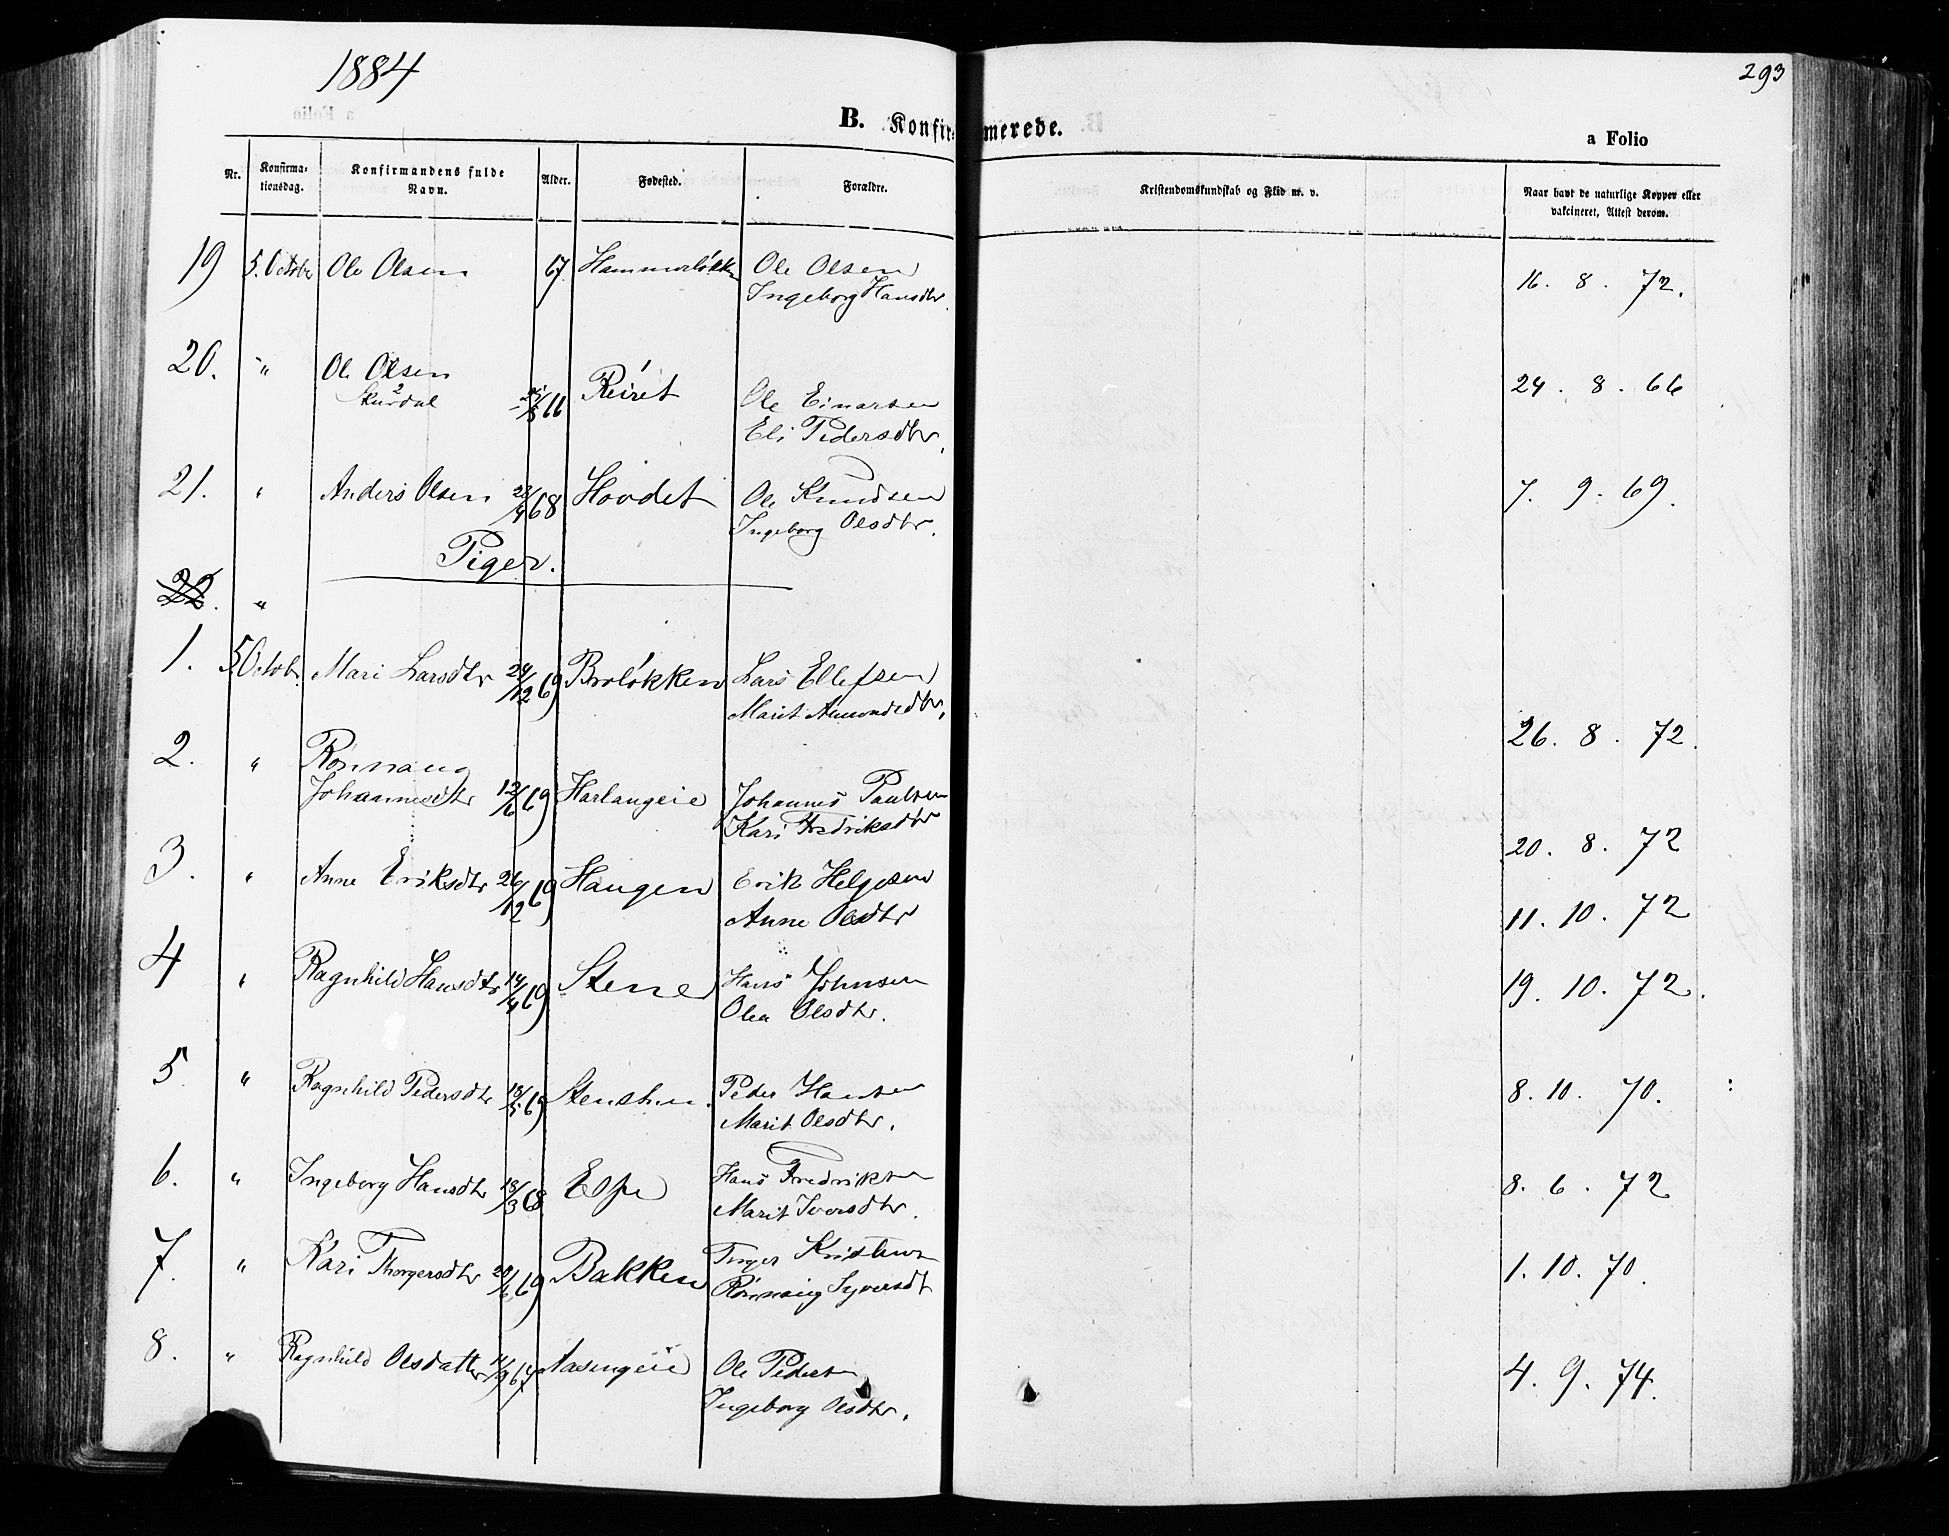 1884
293
B. Konfirmerede.
a Folio
Nr. Konfirma-tionsdag. Konfirmandens fulde Navn. Alder. Fødested. Forældre. Kristendomskundskab og Flid m. v. Naar havt de naturlige Kopper eller vakcineret, Attest derom.
19 5. October Ole Olsen 67 Hammerløkken Ole Olsen 16. 8. 72.
Ingeborg Hansdtr.
20. " Ole Olsen Reiret 24. 8. 66
Skurdal 66 Ole Einarsen
Eli Pedersdtr,
21. " Anders Olsen 23/4 68 Hovdet Ole Knudsen 7. 9. 69.
Ingeborg Olsdtr.
Piger.
22. "
1. 5 Octob. Mari Larsdtr 24/12 69 Broløkken Lars Ellefsen
Marit Amundsdtr, 26. 8. 72.
2. " Rønnaug
Johannesdtr 12/6 69 Harlangeie Johannes Paulsen
Kari Fredriksdtr 20. 8. 72
3. " Anne Eriksdtr 26/12 69 Haugen Erik Helgesen
Anne Olsdtr 11. 10. 72
4 " Ragnhild Hansdtr 14/4 69 Stene Hans Johnsen 19. 10. 72.
Olea Olsdtr.
5 " Ragnhild Pedersdtr 13/5 69 Peder Hansen 8. 10. 70.
Marit Olsdtr.
6. " Ingeborg Hansdtr 18/3 68 Espe Hans Fredriksen 8. 6. 72
Marit Iversdtr.
7. " Kari Thorgersdtr 20/6 69 Bakken Torger Kristensen 1. 10. 70.
Rønnaug Syversdt
8. " Ragnhild Olsdatter 11/9 67 Aasengeie Ole Pedersen 4. 9. 74.
Ingeborg Olsdtr.